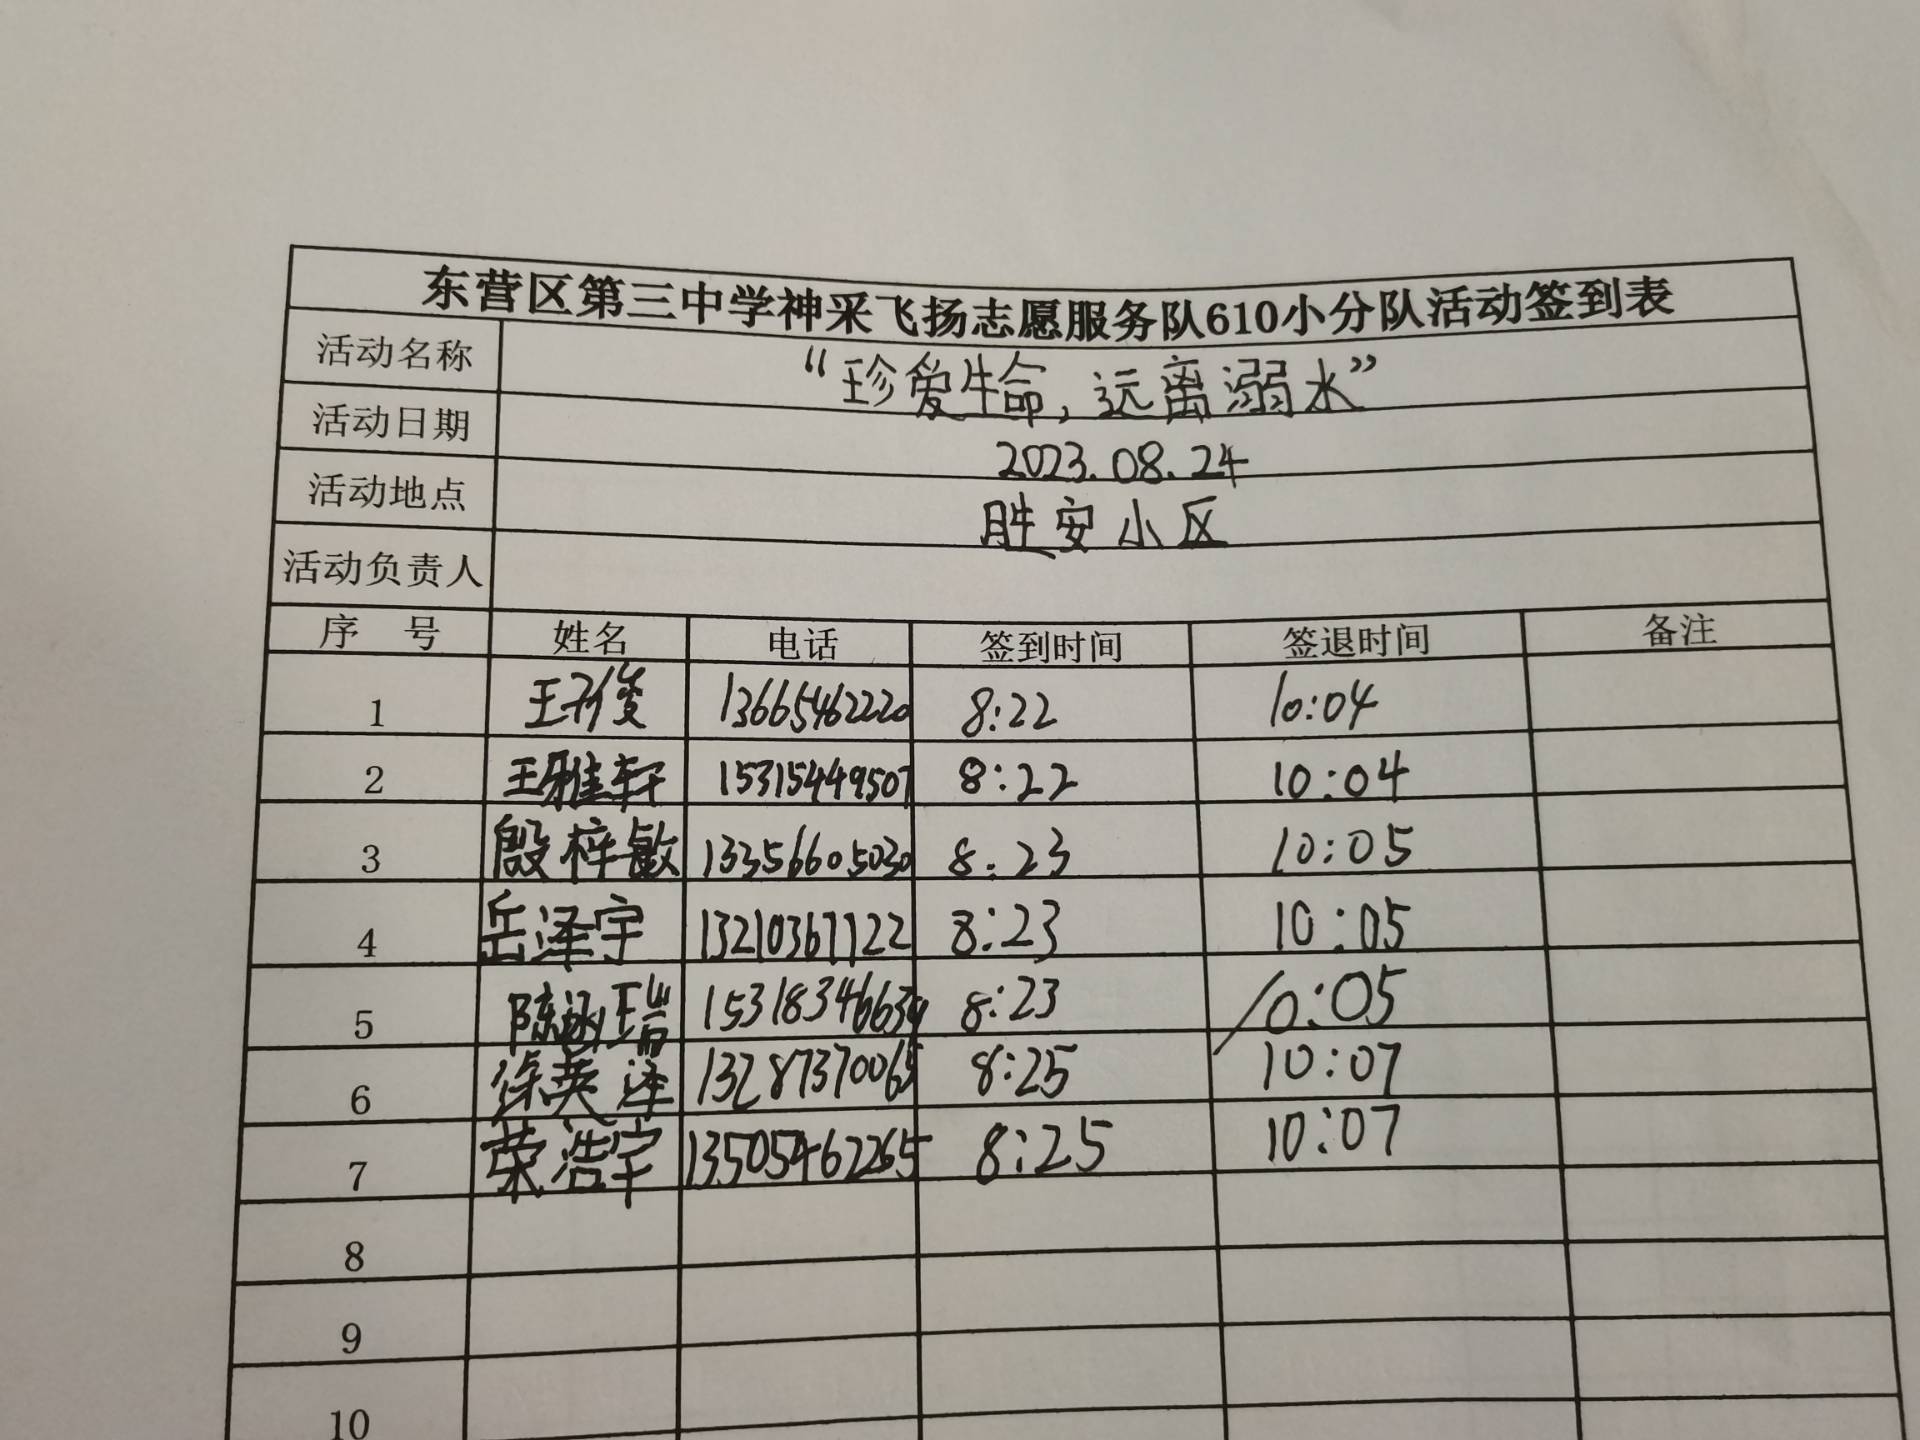 东营区第三中学神采飞扬志愿服务队610小分队活动签到表
活动名称 “珍爱生命，远离溺水”
活动日期 2023.08.24
活动地点 胜安小区
活动负责人
序 号 姓名 电话 签到时间 签退时间 备注
1 王 俊 13665462220 8:22 10:04
2 王雅轩 15315449507 8:22 10:04
3 殷梓 13356605030 8:23 10:05
4 岳泽宇 13210367122 8:23 10:05
5 陈 瑞 8:23 10:05
6 徐英泽 13287370065 8:25 10:07
7 荣浩宇 13505462265 8:25 10:07
8
9
10